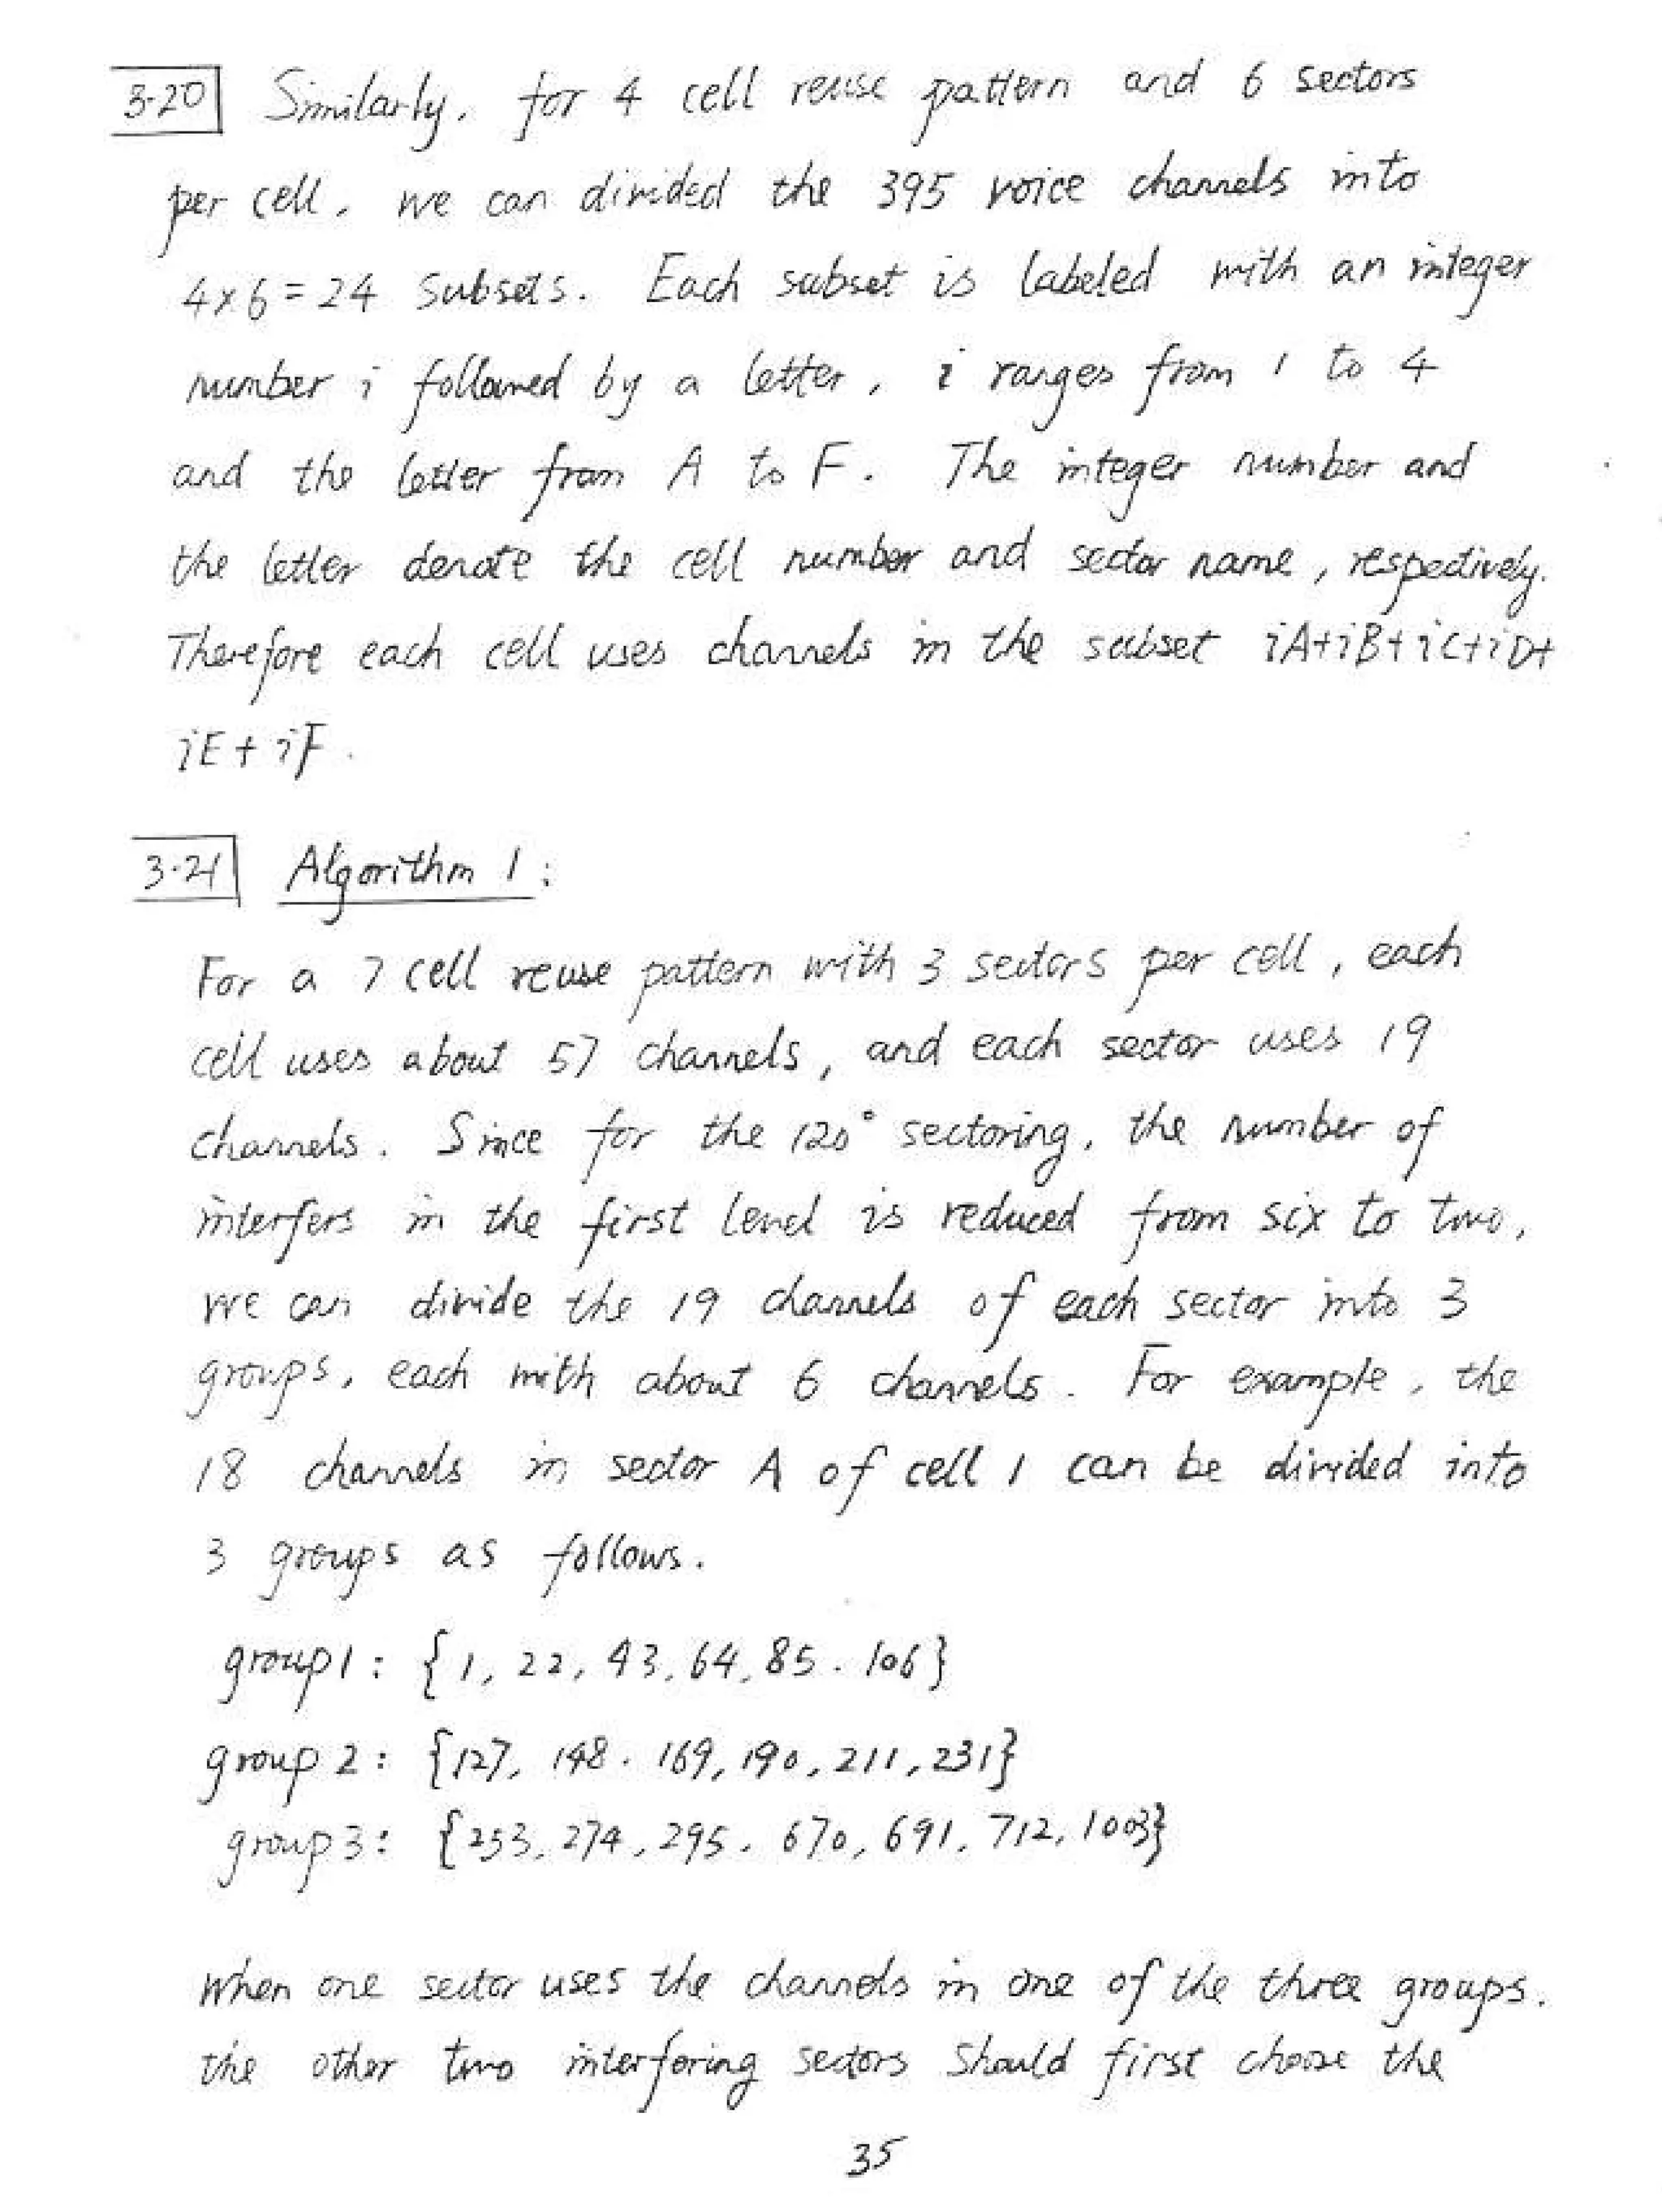 3-20 Similarly, for 4 cell reuse pattern and 6 sectors
per cell, we can divided the 395 voice channels into
4x6=24 subsets. Each subset is labeled with an integer
number i followed by a letter, i ranges from 1 to 4
and the letter from A to F. The integer number and
the letter denote the cell number and sector name, respectively.
Therefore each cell uses channels in the subset iA+iB+iC+iD+
iE+iF.
3-21 Algorithm 1:
For a 7 cell reuse pattern with 3 sectors per cell, each
cell uses about 57 channels, and each sector uses 19
channels. Since for the 120° sectoring, the number of
interfers in the first level is reduced from six to two,
we can divide the 19 channels of each sector into 3
groups, each with about 6 channels. For example, the
18 channels in sector A of cell 1 can be divided into
3 groups as follows.
group1: {1, 22, 43, 64, 85. 106}
group 2: {127, 148. 169, 190, 211, 231}
group3: {253, 274, 295. 670, 691, 712, 1003}
When one sector uses the channels in one of the three groups.
the other two interfering sectors should first choose the
35